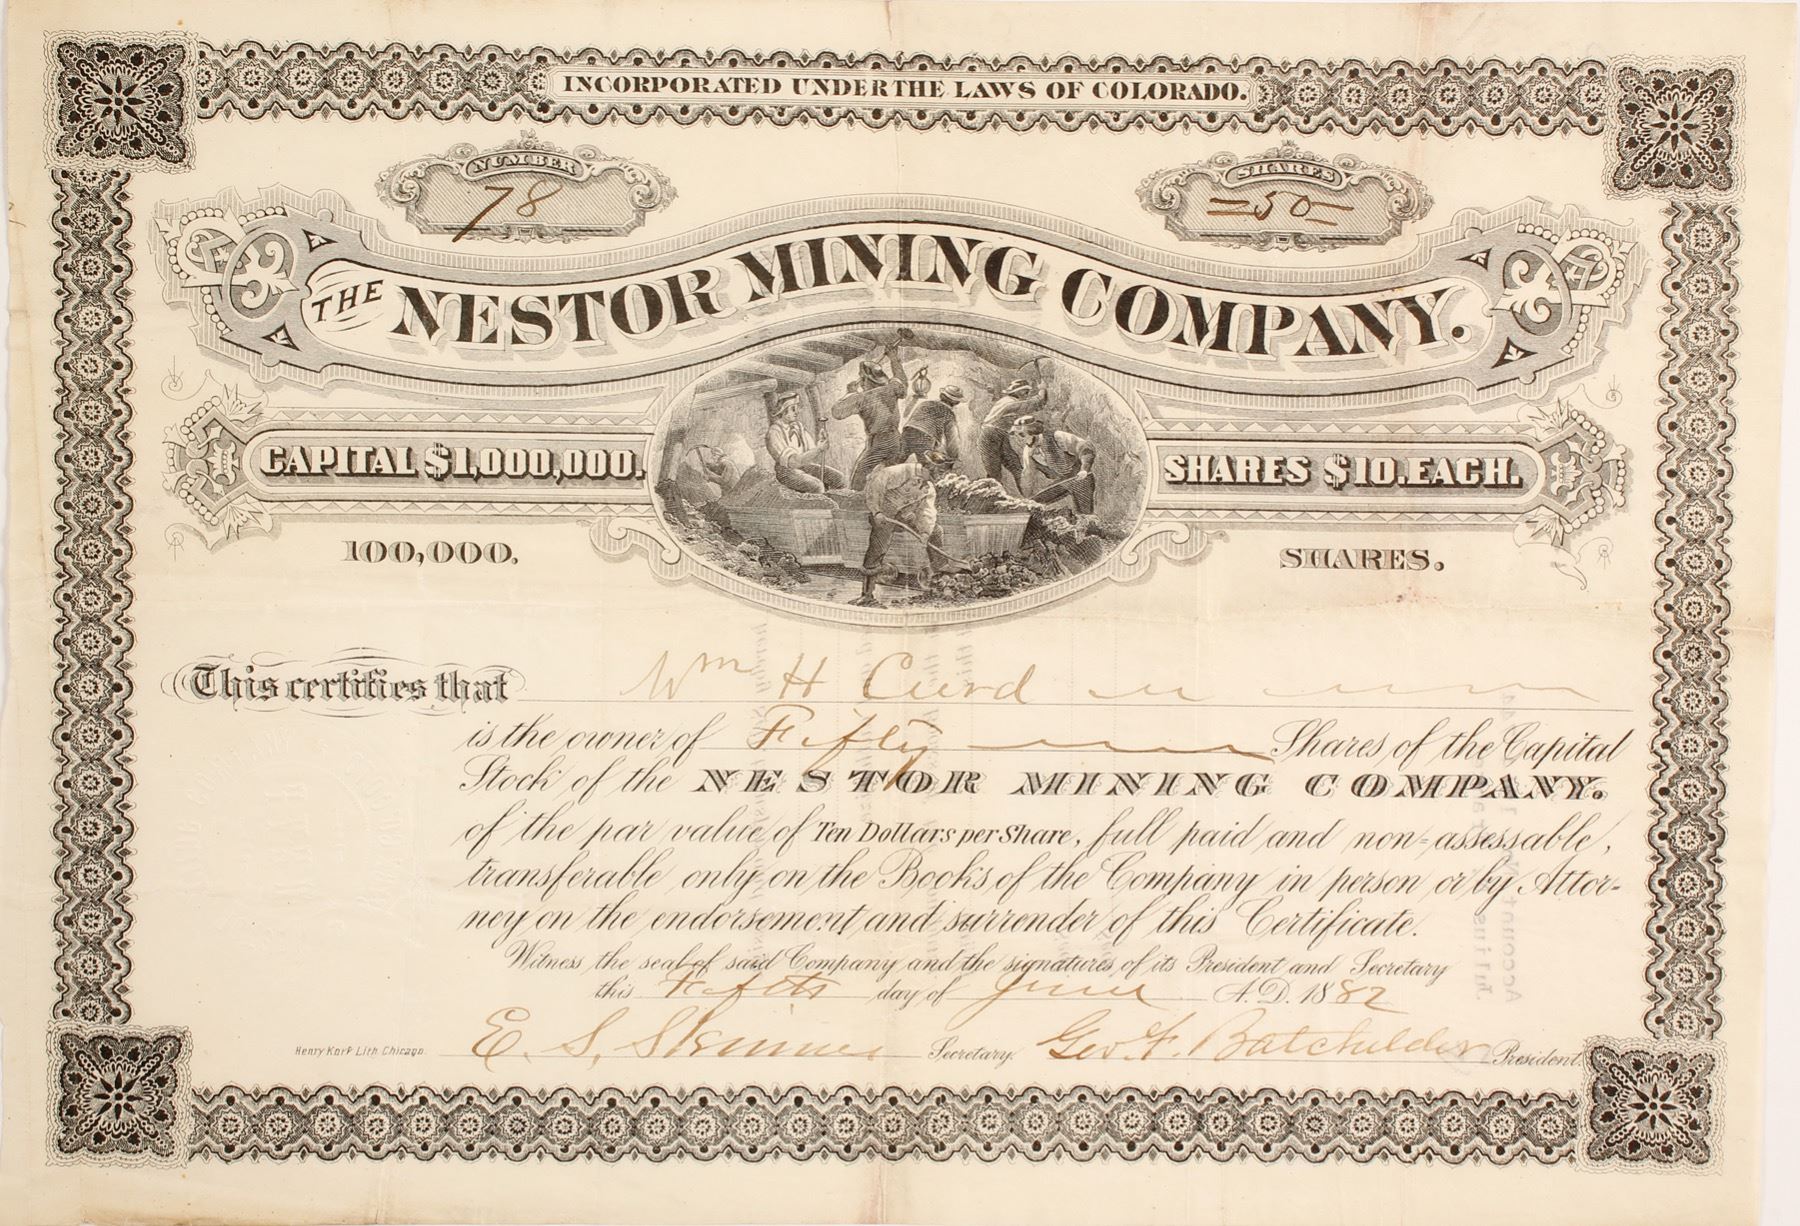 INCORPORATED UNDER THE LAWS OF COLORADO.
NUMBER
78
SHARES
=50=
THE NESTOR MINING COMPANY.
CAPITAL $1,000,000.
SHARES $10. EACH.
100,000.
SHARES.
This certifies that Wm H Curd
is the owner of Fifty Shares of the Capital
Stock of the NESTOR MINING COMPANY.
of the par value of Ten Dollars per Share, full paid and non-assessable,
transferable only on the Books of the Company in person or by Attor-
ney on the endorsement and surrender of this Certificate.
Witness the seal of said Company and the signatures of its President and Secretary
this Fifth day of June A.D. 1882
Henry Korf Lith. Chicago.
E. S. Skinner Secretary. Geo. F. Batchelder President.